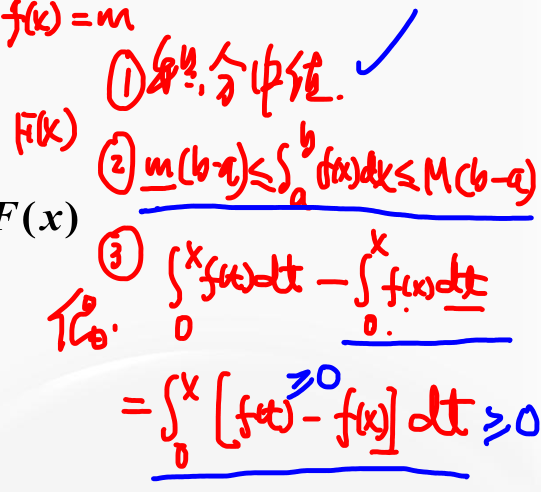 f(x) = m
① 积分中值. ✓
F(x)
② m(b-a) ≤ ∫_a^b f(x)dx ≤ M(b-a)
F(x)
③ ∫_0^x f(t)dt - ∫_0^x f(x)dt
= ∫_0^x [f(t) - f(x)] dt ≥ 0
≥ 0